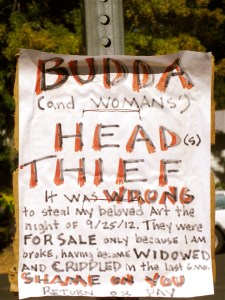 BUDDA
(and WOMANS')
HEAD(s)
THIEF
It was WRONG
to steal my beloved Art the
night of 9/25/12. They were
FOR SALE only because I am
broke, having become WIDOWED
AND CRIPPLED in the last 6 mo.
SHAME ON YOU
RETURN OR PAY